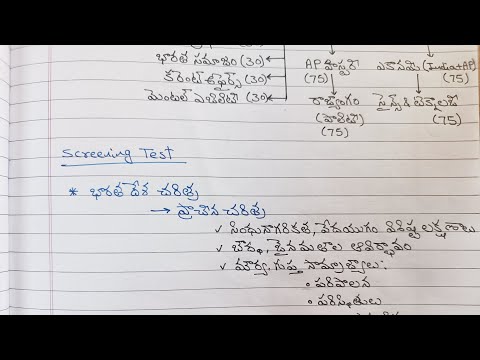 భారత సమాజం (30)
కరెంట్ అఫైర్స్ (30)
మెంటల్ ఎబిలిటీ (30)
AP హిస్టరీ
(75)
రాజ్యాంగం
(పాలిటీ)
(75)
ఎకానమీ (India+AP)
(75)
సైన్స్ & టెక్నాలజీ
(75)
Screening Test
* భారత దేశ చరిత్ర
→ ప్రాచీన చరిత్ర
✓ సింధునాగరికత, వేదయుగం విశిష్ట లక్షణాలు
✓ బౌద్ధ, జైన మతాల ఆవిర్భావం
✓ మౌర్య, గుప్త సామ్రాజ్యాలు:
• పరిపాలన
• పరిస్థితులు